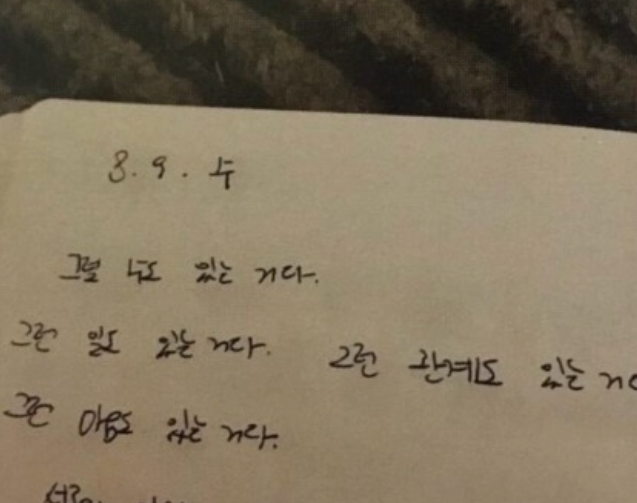 8. 9. 수
그럴 수도 있는 거다.
그런 일도 있는 거다. 그런 관계도 있는 거
그런 마음도 있는 거다.